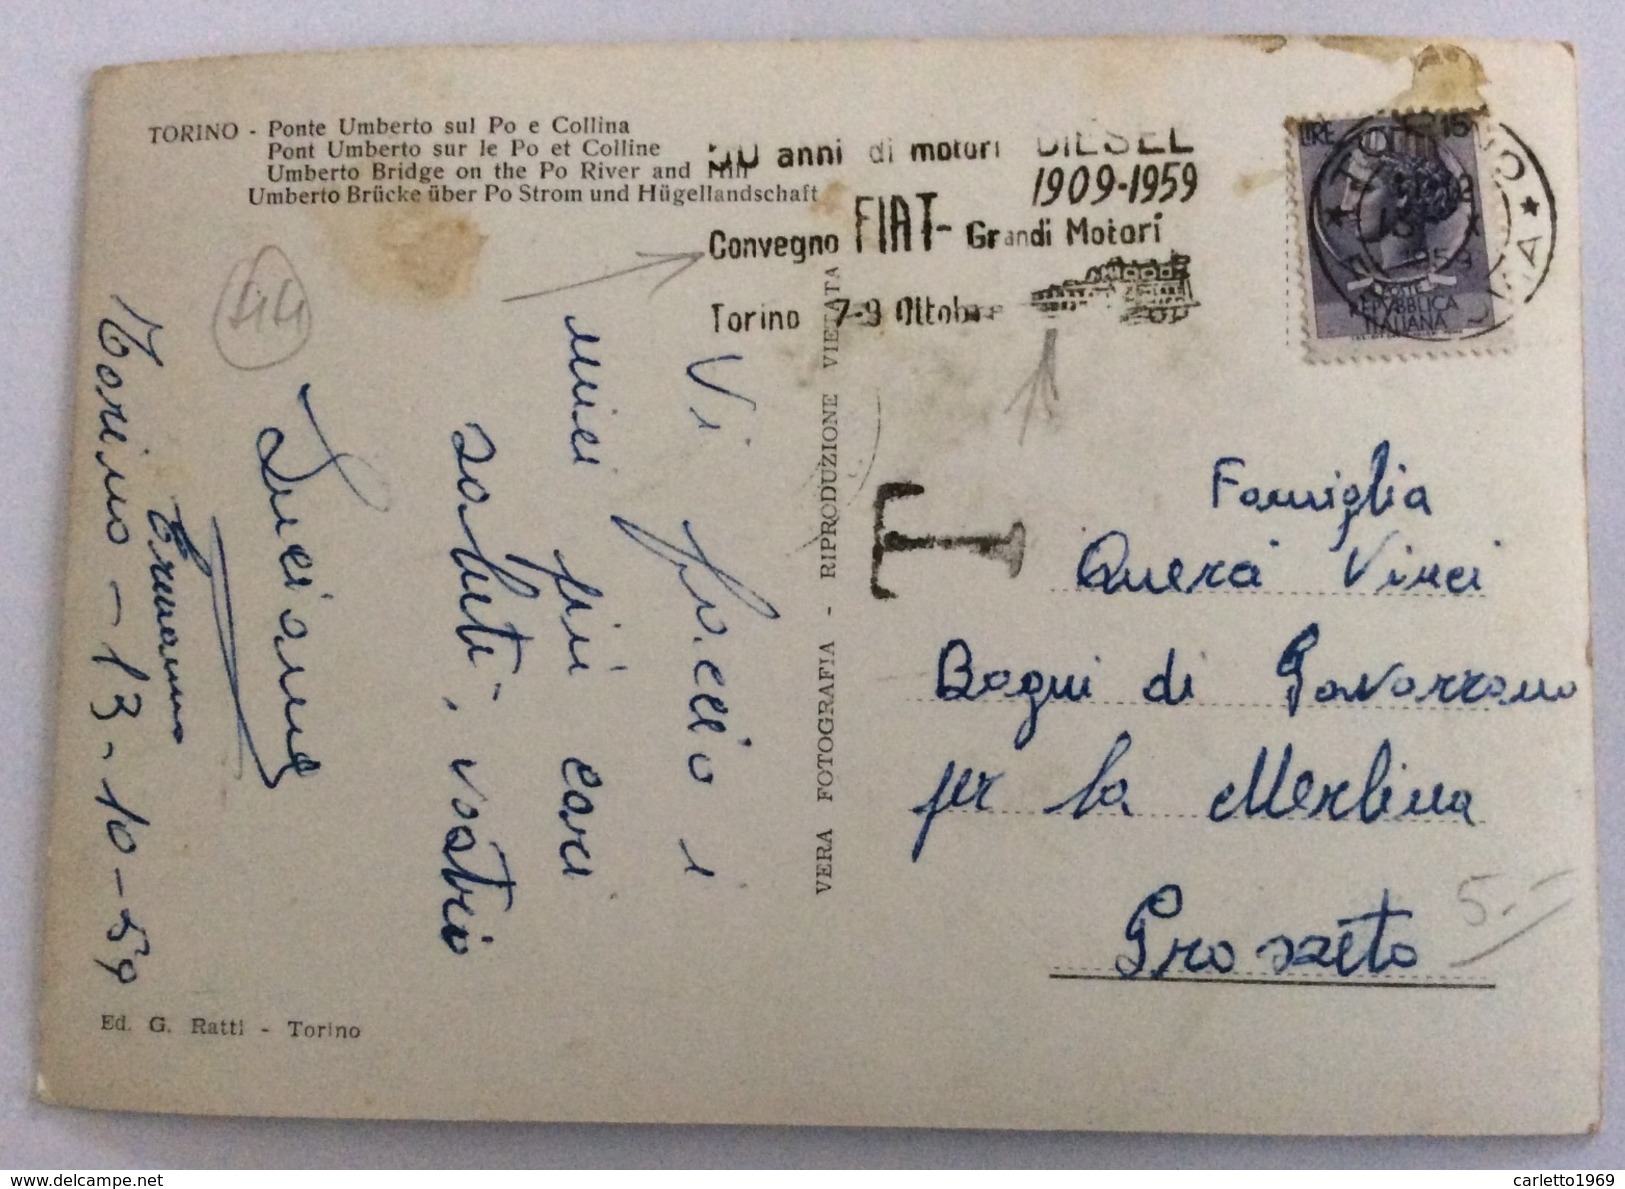 TORINO - Ponte Umberto sul Po e Collina
Pont Umberto sur le Po et Colline
Umberto Bridge on the Po River and Hill
Umberto Brücke über Po Strom und Hügellandschaft
50 anni di motori DIESEL
1909-1959
Convegno FIAT - Grandi Motori
Torino 7-9 Ottobre
LIRE 15
POSTE
REPVBBLICA
ITALIANA
1959
44
Vi giunghino i
miei più cari
saluti, vostro
Luciano
Ermanno
Torino - 13-10-59
VERA FOTOGRAFIA - RIPRODUZIONE VIETATA
T
Famiglia
Querci Vinci
Bagni di Gavorrano
per la Merlina
Grosseto
5.-
Ed. G. Ratti - Torino
delcampe.net
carletto1969